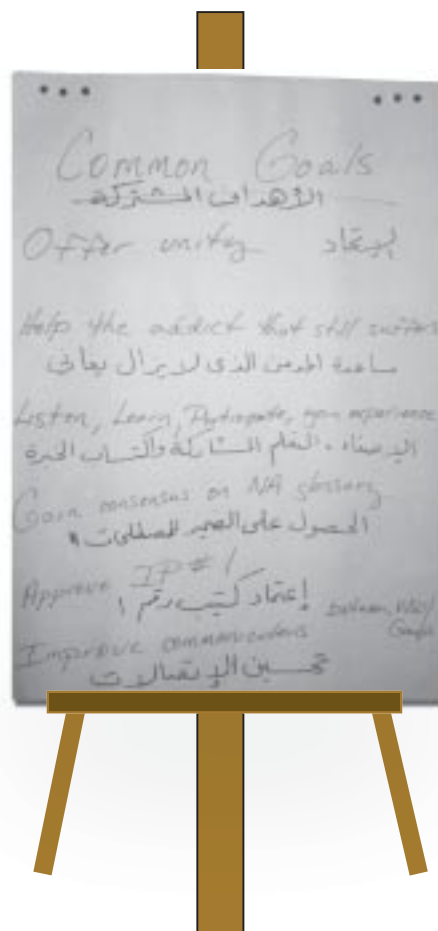 Common Goals
الأهداف المشتركة
Offer unity
Help the addict that still suffers
مساعدة المدمن الذي لا يزال يعاني
Listen, Learn, Participate, gain experience
الإصغاء، التعلم المشاركة واكتساب الخبرة
Gain consensus on NA glossary
الحصول على
Approve IP # 1
إعتماد كتيب رقم ١
between
Improve communications
تحسين الإتصالات